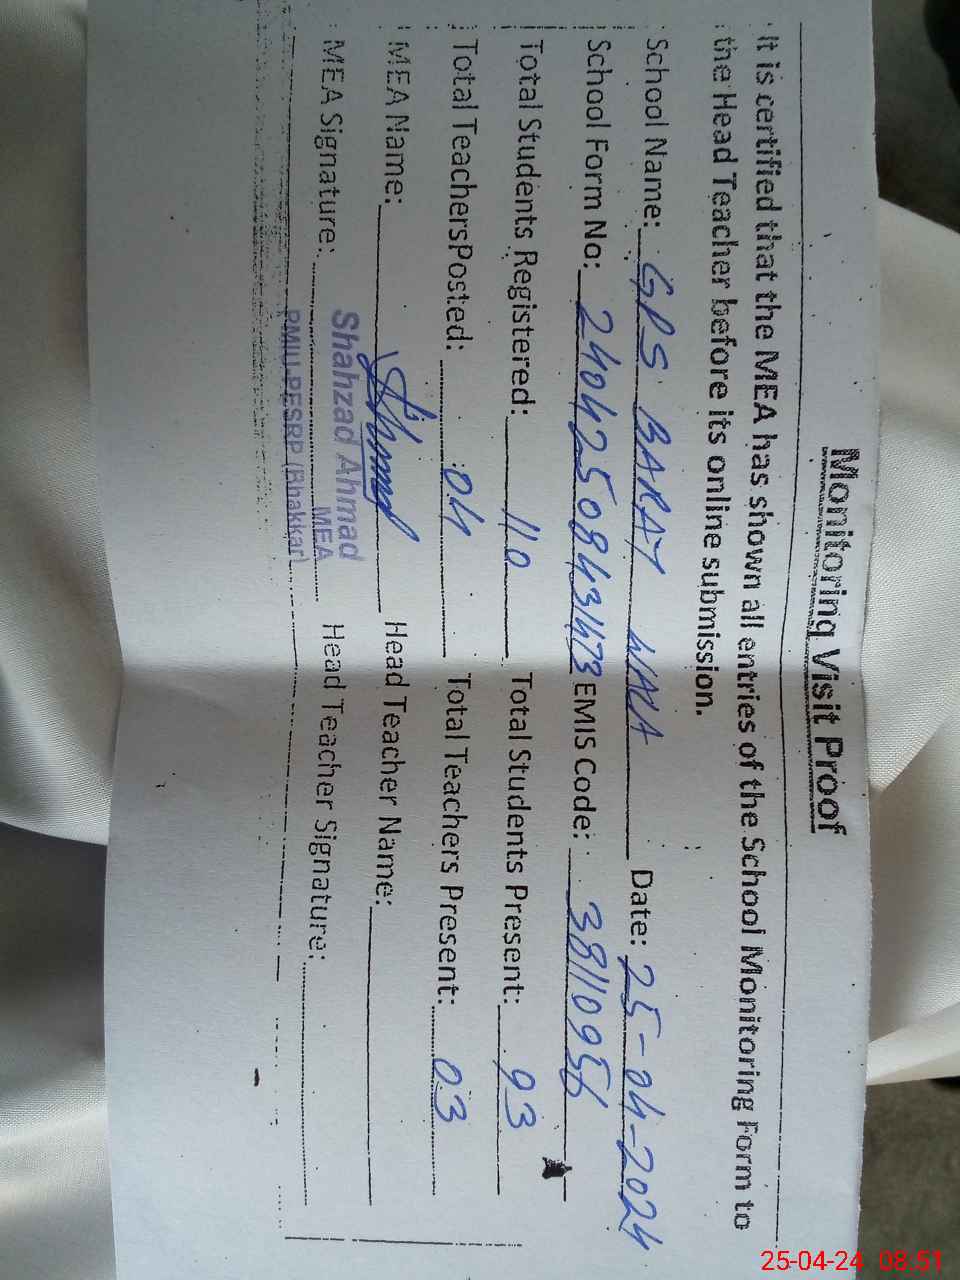 Monitoring Visit Proof
It is certified that the MEA has shown all entries of the School Monitoring Form to
the Head Teacher before its online submission.
School Name: GPS BARAY WALA Date: 25-04-2024
School Form No: 2404250843473 EMIS Code: 38110956
Total Students Registered: 110 Total Students Present: 93
Total TeachersPosted: 04 Total Teachers Present: 03
MEA Name: Head Teacher Name:
MEA Signature: Head Teacher Signature:
Shahzad Ahmad
MEA
PMIU-PESRP (Bhakkar)
25-04-24 08:51